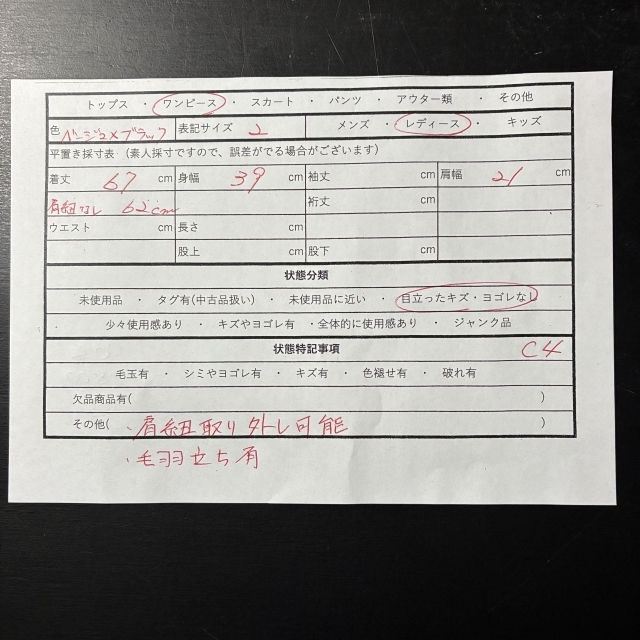 トップス ・ ワンピース ・ スカート ・ パンツ ・ アウター類 ・ その他
色 ベージュ×ブラック 表記サイズ 2 メンズ ・ レディース ・ キッズ
平置き採寸表 (素人採寸ですので、誤差がでる場合がございます)
着丈 67 cm 身幅 39 cm 袖丈 cm 肩幅 21 cm
肩紐なし 62cm 裄丈 cm
ウエスト cm 長さ cm
股上 cm 股下 cm
状態分類
未使用品 ・ タグ有(中古品扱い) ・ 未使用品に近い ・ 目立ったキズ・ヨゴレなし
・ 少々使用感あり ・ キズやヨゴレ有 ・全体的に使用感あり ・ ジャンク品
状態特記事項 C4
毛玉有 ・ シミやヨゴレ有 ・ キズ有 ・ 色褪せ有 ・ 破れ有
欠品商品有( )
その他( ・肩紐取り外し可能 )
・毛羽立ち有